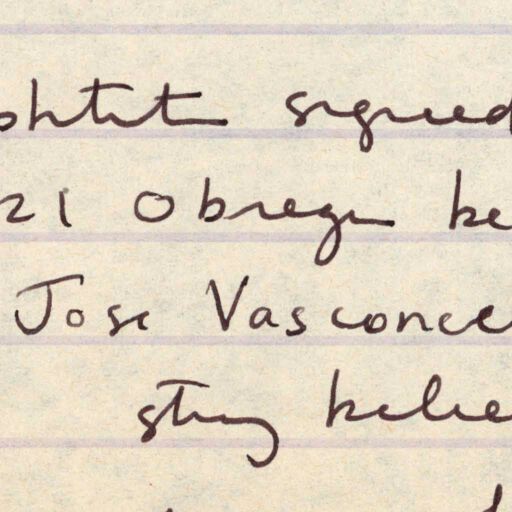 signed
21 Obregon be
Jose Vasconce
strong belie